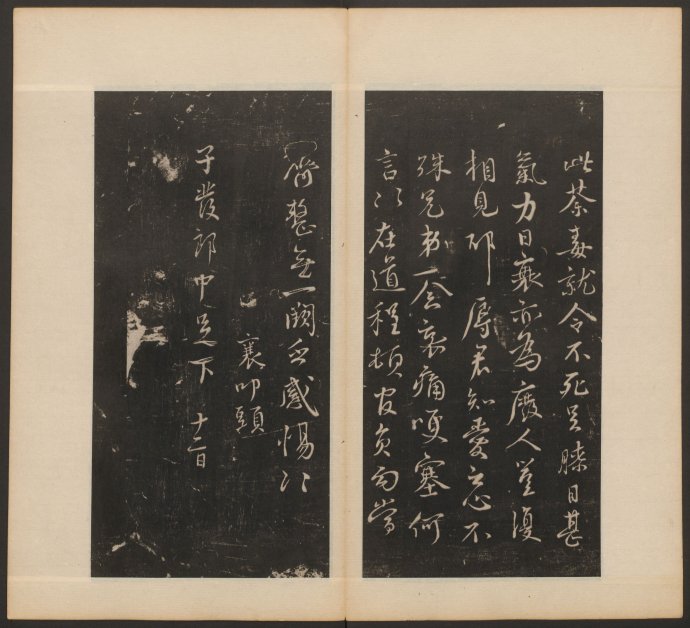 此荼毒就令不死足膝日甚
氣力日衰亦為廢人豈復
相見邪辱君知愛忘不
殊兄弟一念哀痛哽塞何
言以在道程頓皆食
齊整無一闕感惕以
襄叩頭
子發郎中足下 十二日